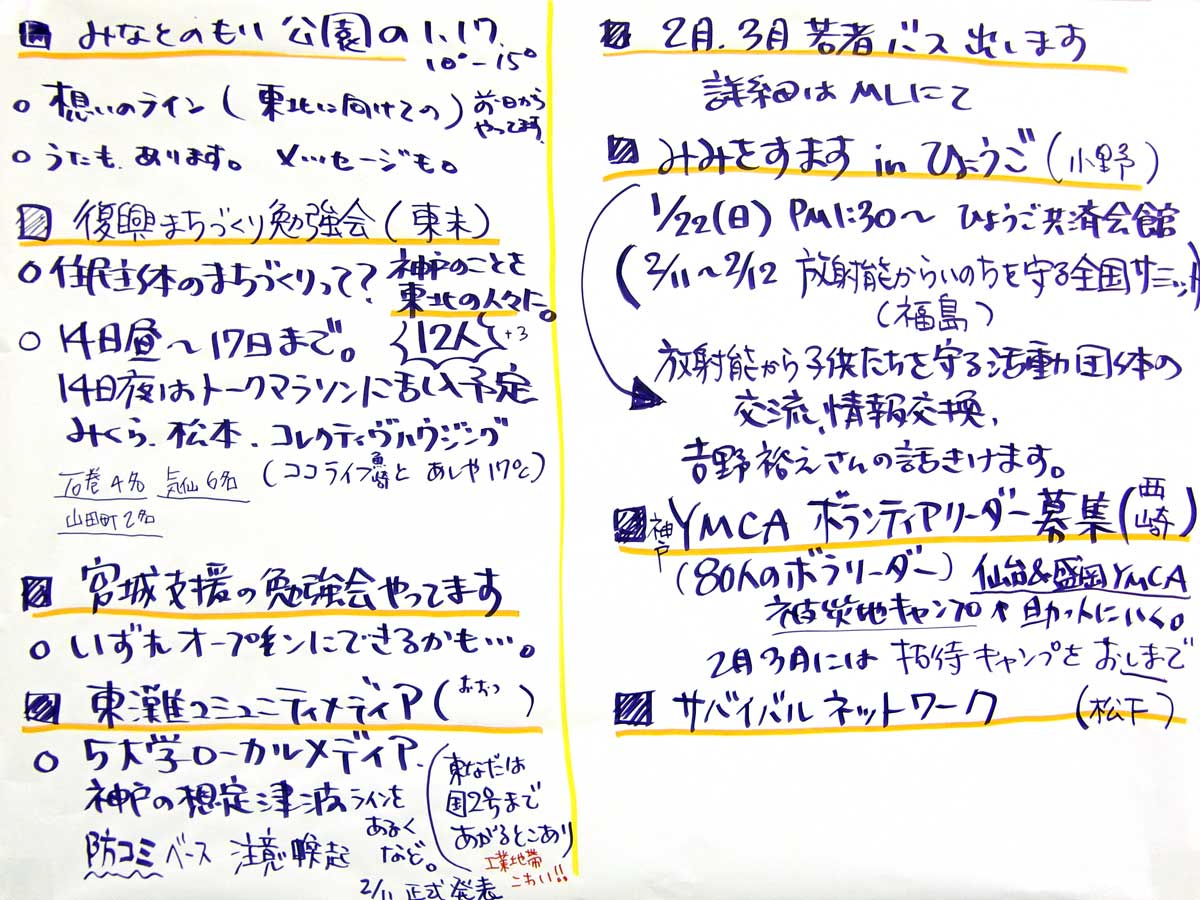 みなとのもり 公園の1.17.
10°-15°
○ 想いのライン (東北に向けての) 前日から
やってます
○ うたも、あります。 メッセージも。
復興まちづくり勉強会 (東末)
○ 住民主体のまちづくりって? 神戸のことを
東北の人々に。
○ 14日昼〜17日まで。 12人 +3
14日夜はトークマラソンに合し入予定
みくら、松本、コレクティヴハウジング
(ココライフ魚崎と あしや17℃)
石巻4名 気仙6名
山田町2名
宮城支援の勉強会やってます
○ いずれオープモンにできるかも…。
東灘コミュニティメディア (おおつ )
○ 5大学ローカルメディア.
神戸の想定津波ラインを
あるく
など。
防コミベース 注意喚起
2/11 正式発表
(東なだは
国2号まで
あがるとこあり
工業地帯
こわい!!
2月.3月 若者バス出します
詳細はMLにて
みみをすます in ひょうご (小野)
1/22(日) PM1:30〜 ひょうご共済会館
(2/11〜2/12 放射能からいのちを守る全国サミット
(福島)
放射能から子供たちを守る活動団体の
交流、情報交換、
吉野裕之さんの話きけます。
神戸YMCA ボランティアリーダー募集 (西崎)
(80人のボラリーダー) 仙台&盛岡YMCA
被災地キャンプ↑助っ人にいく。
2月3月には 招待キャンプを おしまで
サバイバルネットワーク (松下)